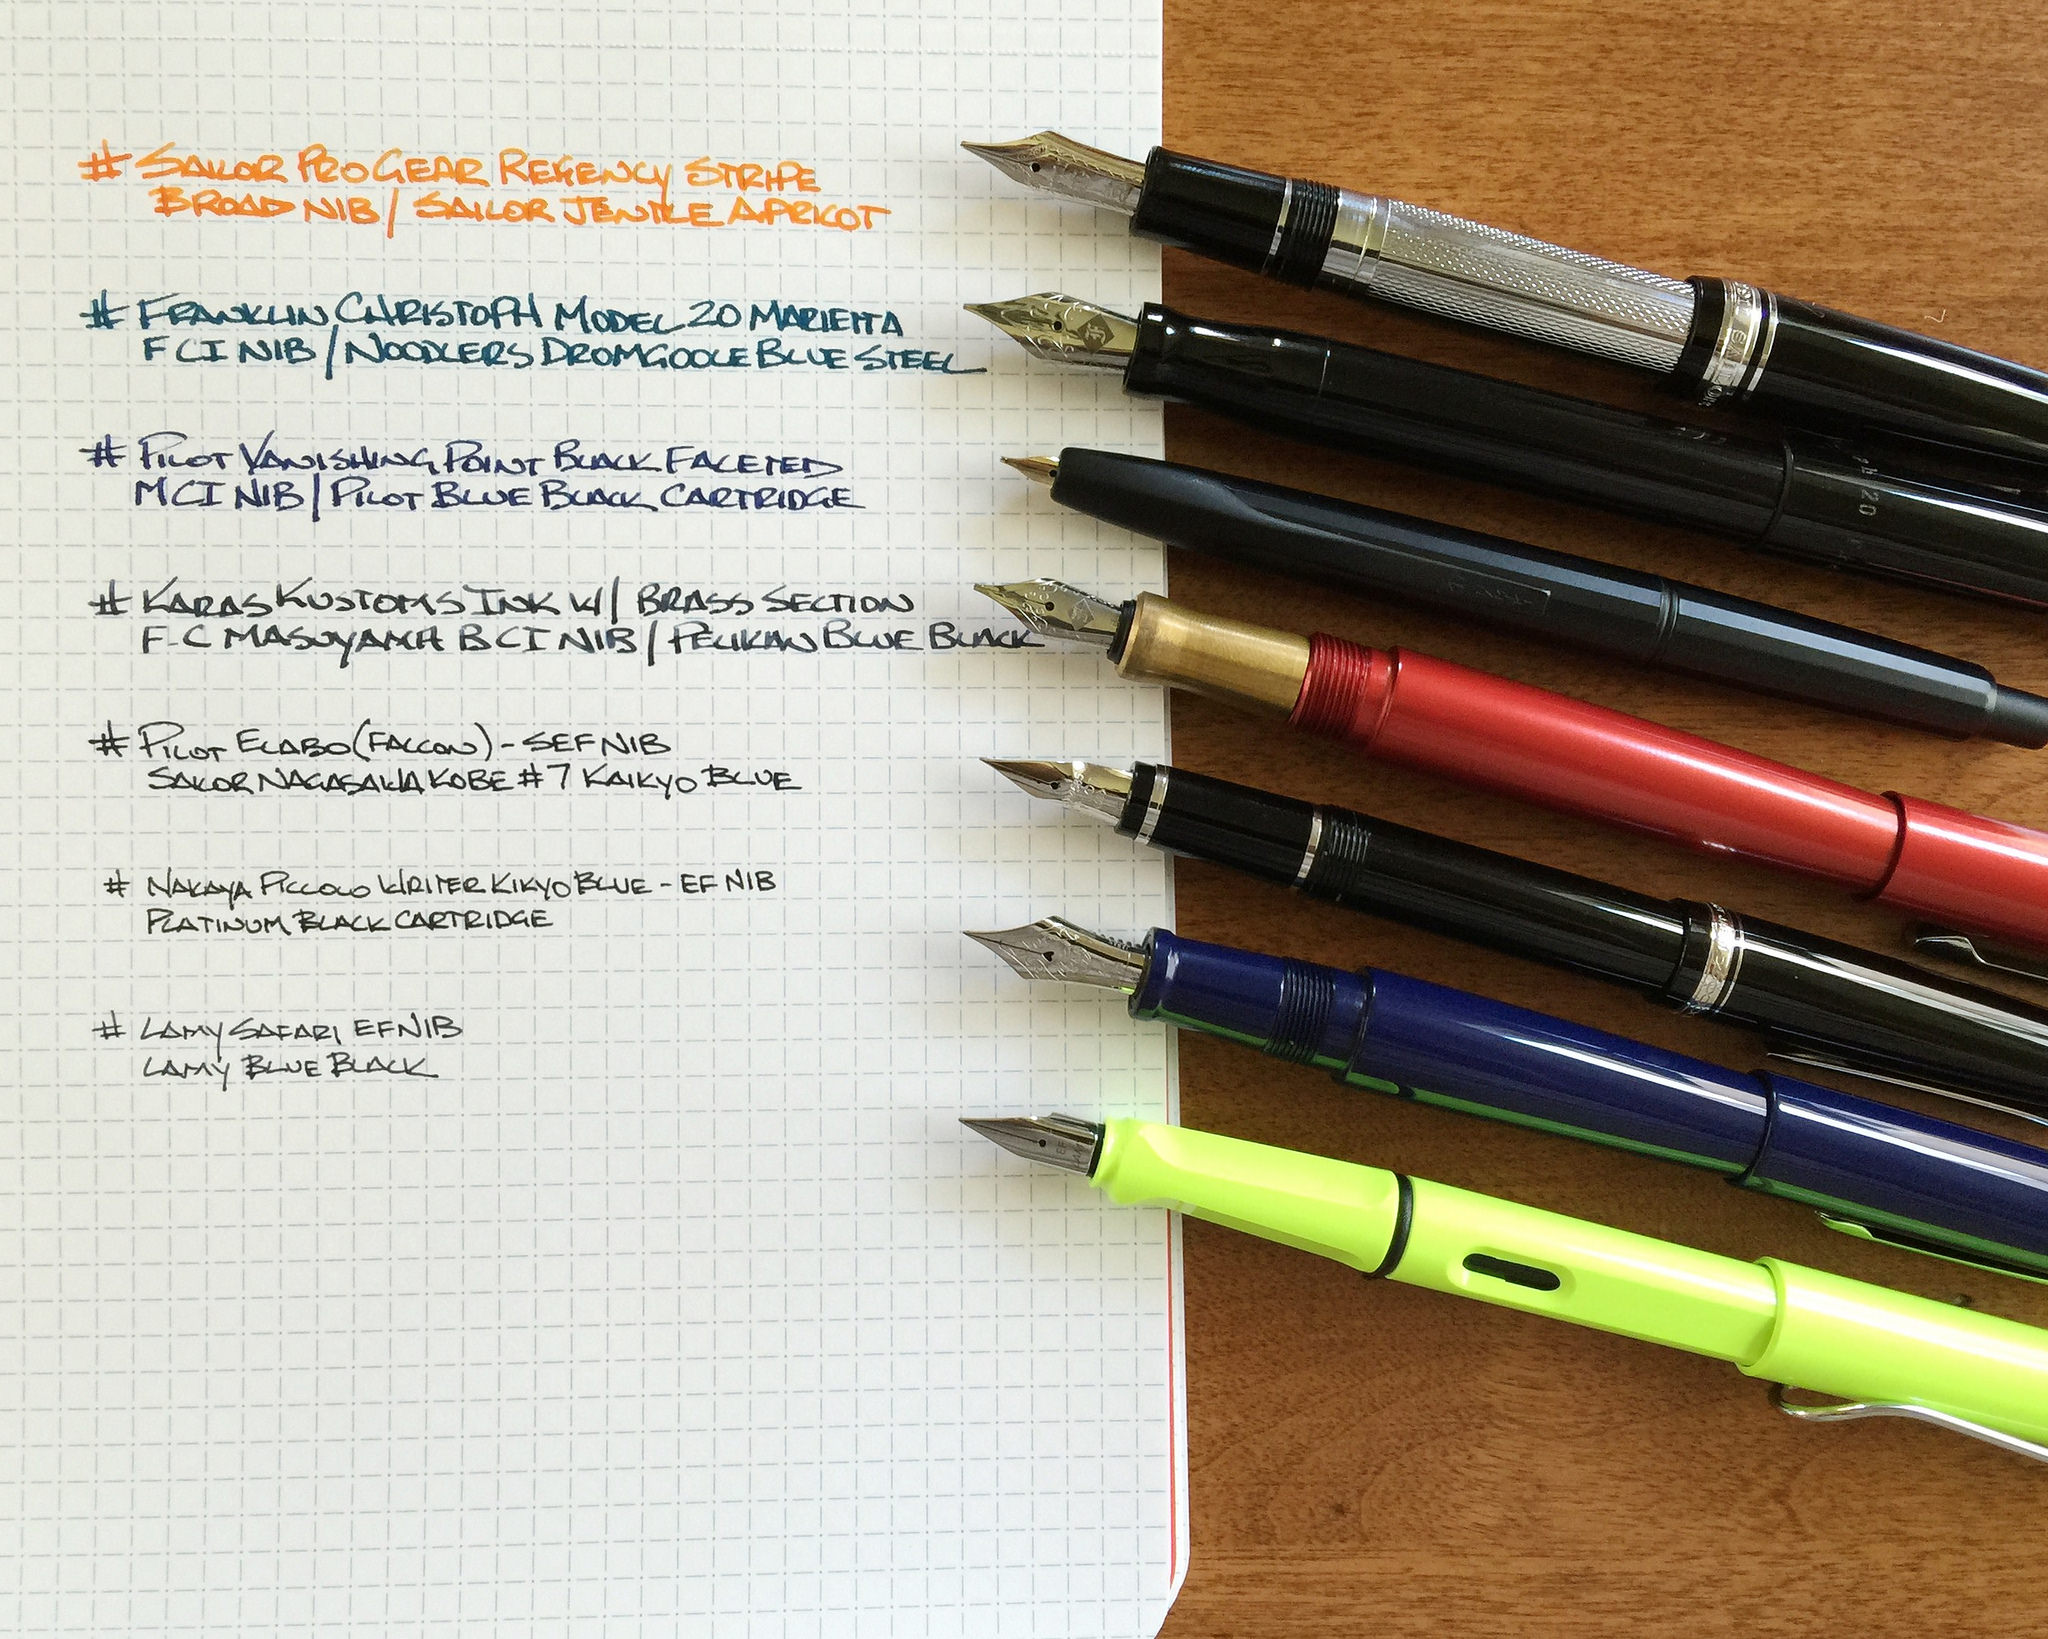 # SAILOR PRO GEAR REGENCY STRIPE
BROAD NIB / SAILOR JENTLE APRICOT
# FRANKLIN CHRISTOPH MODEL 20 MARIETTA
F CI NIB / NOODLERS DROMGOOLE BLUE STEEL
# PILOT VANISHING POINT BLACK FACETED
M CI NIB / PILOT BLUE BLACK CARTRIDGE
# KARAS KUSTOMS INK W/ BRASS SECTION
F-C MASUYAMA B CI NIB / PELIKAN BLUE BLACK
# PILOT ELABO (FALCON) - SEF NIB
SAILOR NAGASAWA KOBE #7 KAIKYO BLUE
# NAKAYA PICCOLO WRITER KIKYO BLUE - EF NIB
PLATINUM BLACK CARTRIDGE
# LAMY SAFARI EF NIB
LAMY BLUE BLACK